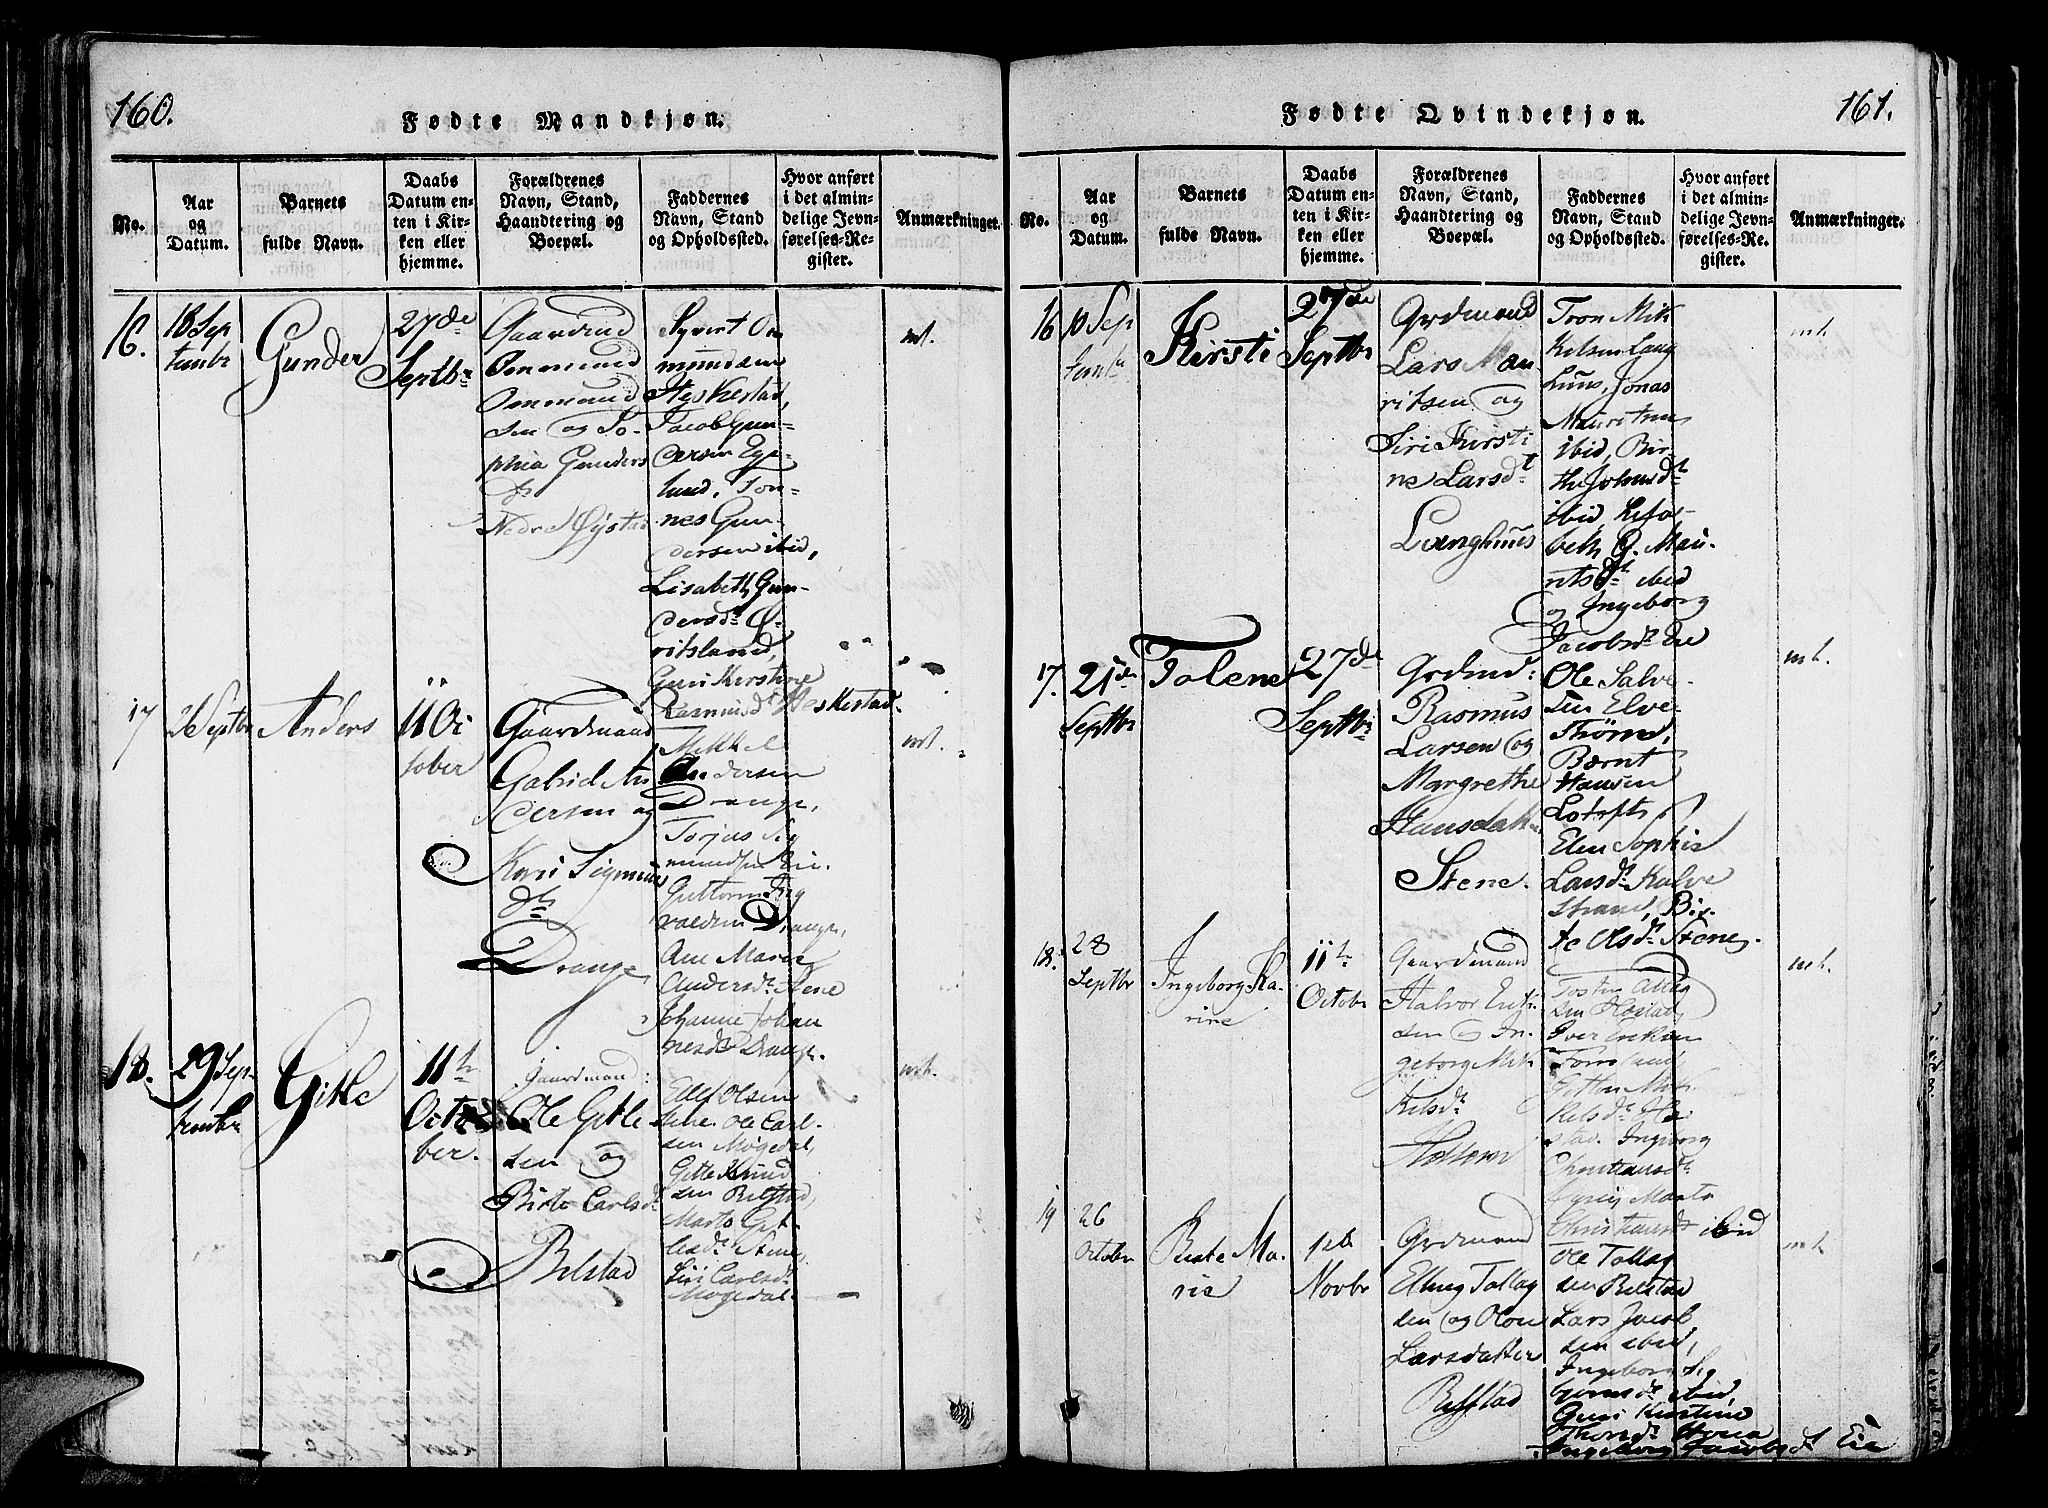 160.
Fødte Mandkjøn.
No.
Aar
og
Datum.
Barnets
fulde Navn.
Daabs
Datum en-
ten i Kir-
ken eller
hjemme.
Forældrenes
Navn, Stand,
Haandtering og
Boepæl.
Faddernes
Navn, Stand
og Opholdssted.
Hvor anført
i det almin-
delige Jevn-
førelses-Re-
gister.
Anmærkninger.
16.
18 Sep
tembr
Gunder
27de
Septbr
Gaardmd
Ommund
Ommund
sen og So-
phia Gunders
dr
Nedre Øystad
Syvert Om
mundsen
Heskestad,
Jacob Gun-
dersen Ege-
lund, Ton-
nes Gun-
dersen ibid,
Lisabeth Gun-
dersdr
ritsland,
Guri Kirstine
Rasmusdr Heskestad.
mt.
17
26 Septbr
Anders
11 Oc
tober
Gaardmand
Gabriel An
dersen og
Kari Sigmun
dr
Drange
Mikkel
Andersen
Drange,
Torjus Sig
mundsen
Guttorm Ing
valdsen Drange,
Ane Marie
Andersdr Stene
Johanne Johan
nesdr Drange.
mt.
18.
29 Sep-
tembr
Gitle
11te
Octo
ber.
Gaardmand:
Ole Gitle
sen og
Birte Carlsdr
Bilstad
Ellef Olsen
Stene, Ole Carl-
sen Møgedal,
Gitle Knud
sen Bilstad,
Marta Git-
lesdr Stene,
Siri Carlsdr
Møgedal.
mt.
161.
Fødte Qvindekjøn.
No.
Aar
og
Datum.
Barnets
fulde Navn.
Daabs
Datum en-
ten i Kir-
ken eller
hjemme.
Forældrenes
Navn, Stand,
Haandtering og
Boepæl.
Faddernes
Navn, Stand
og Opholdssted.
Hvor anført
i det almin-
delige Jevn-
førelses-Re-
gister.
Anmærkninger.
16
10 Sep
tembr
Kirsti
27de
Septbr
Grdmand
Lars Mau
ritsen og
Siri Kirsti
ne Larsdt
Langhuus
Tron Mik
kelsen Lang
huus, Jonas
Mauritsen
ibid, Bir-
the Johnsdt
ibid, Lisa-
beth G. Mau-
ritsdt ibid
og Ingeborg
Jacobsdr Eie
mt.
17.
21de
Septbr
Tolene
27de
Septbr
Grdmd:
Rasmus
Larsen og
Margrethe
Hansdatt
Stene.
Ole Salve-
sen Elve-
Bærnt
Hansen
Loteft,
Elen Sophie
Larsdr Kalve
strand, Bir-
te Olsdr Stene.
mt.
18.
28
Septbr
Ingeborg Ka-
rine
11te
Octobr
Gaardmand
Halvor Erik
sen og In-
geborg Mik
kelsdr
Tosten Aag
sen
Iver Erikson
Gitlen Mik
kelsdr
stad. Ingeborg
Christiansdr
Marta
Christiansdr ibid
mt.
19
26
October
Berte Ma-
rie
1de
Novbr
Grdmand
Elling Tollag
sen og Olene
Larsdatter
Bilstad
Ole Tollag
sen Bilstad
Lars Jacob
sen ibid,
Ingeborg Sig
bjørnsdr ibid,
Guri Kirstine
Thorsdr
Ingeborg Jacobsdt Eie
mt.